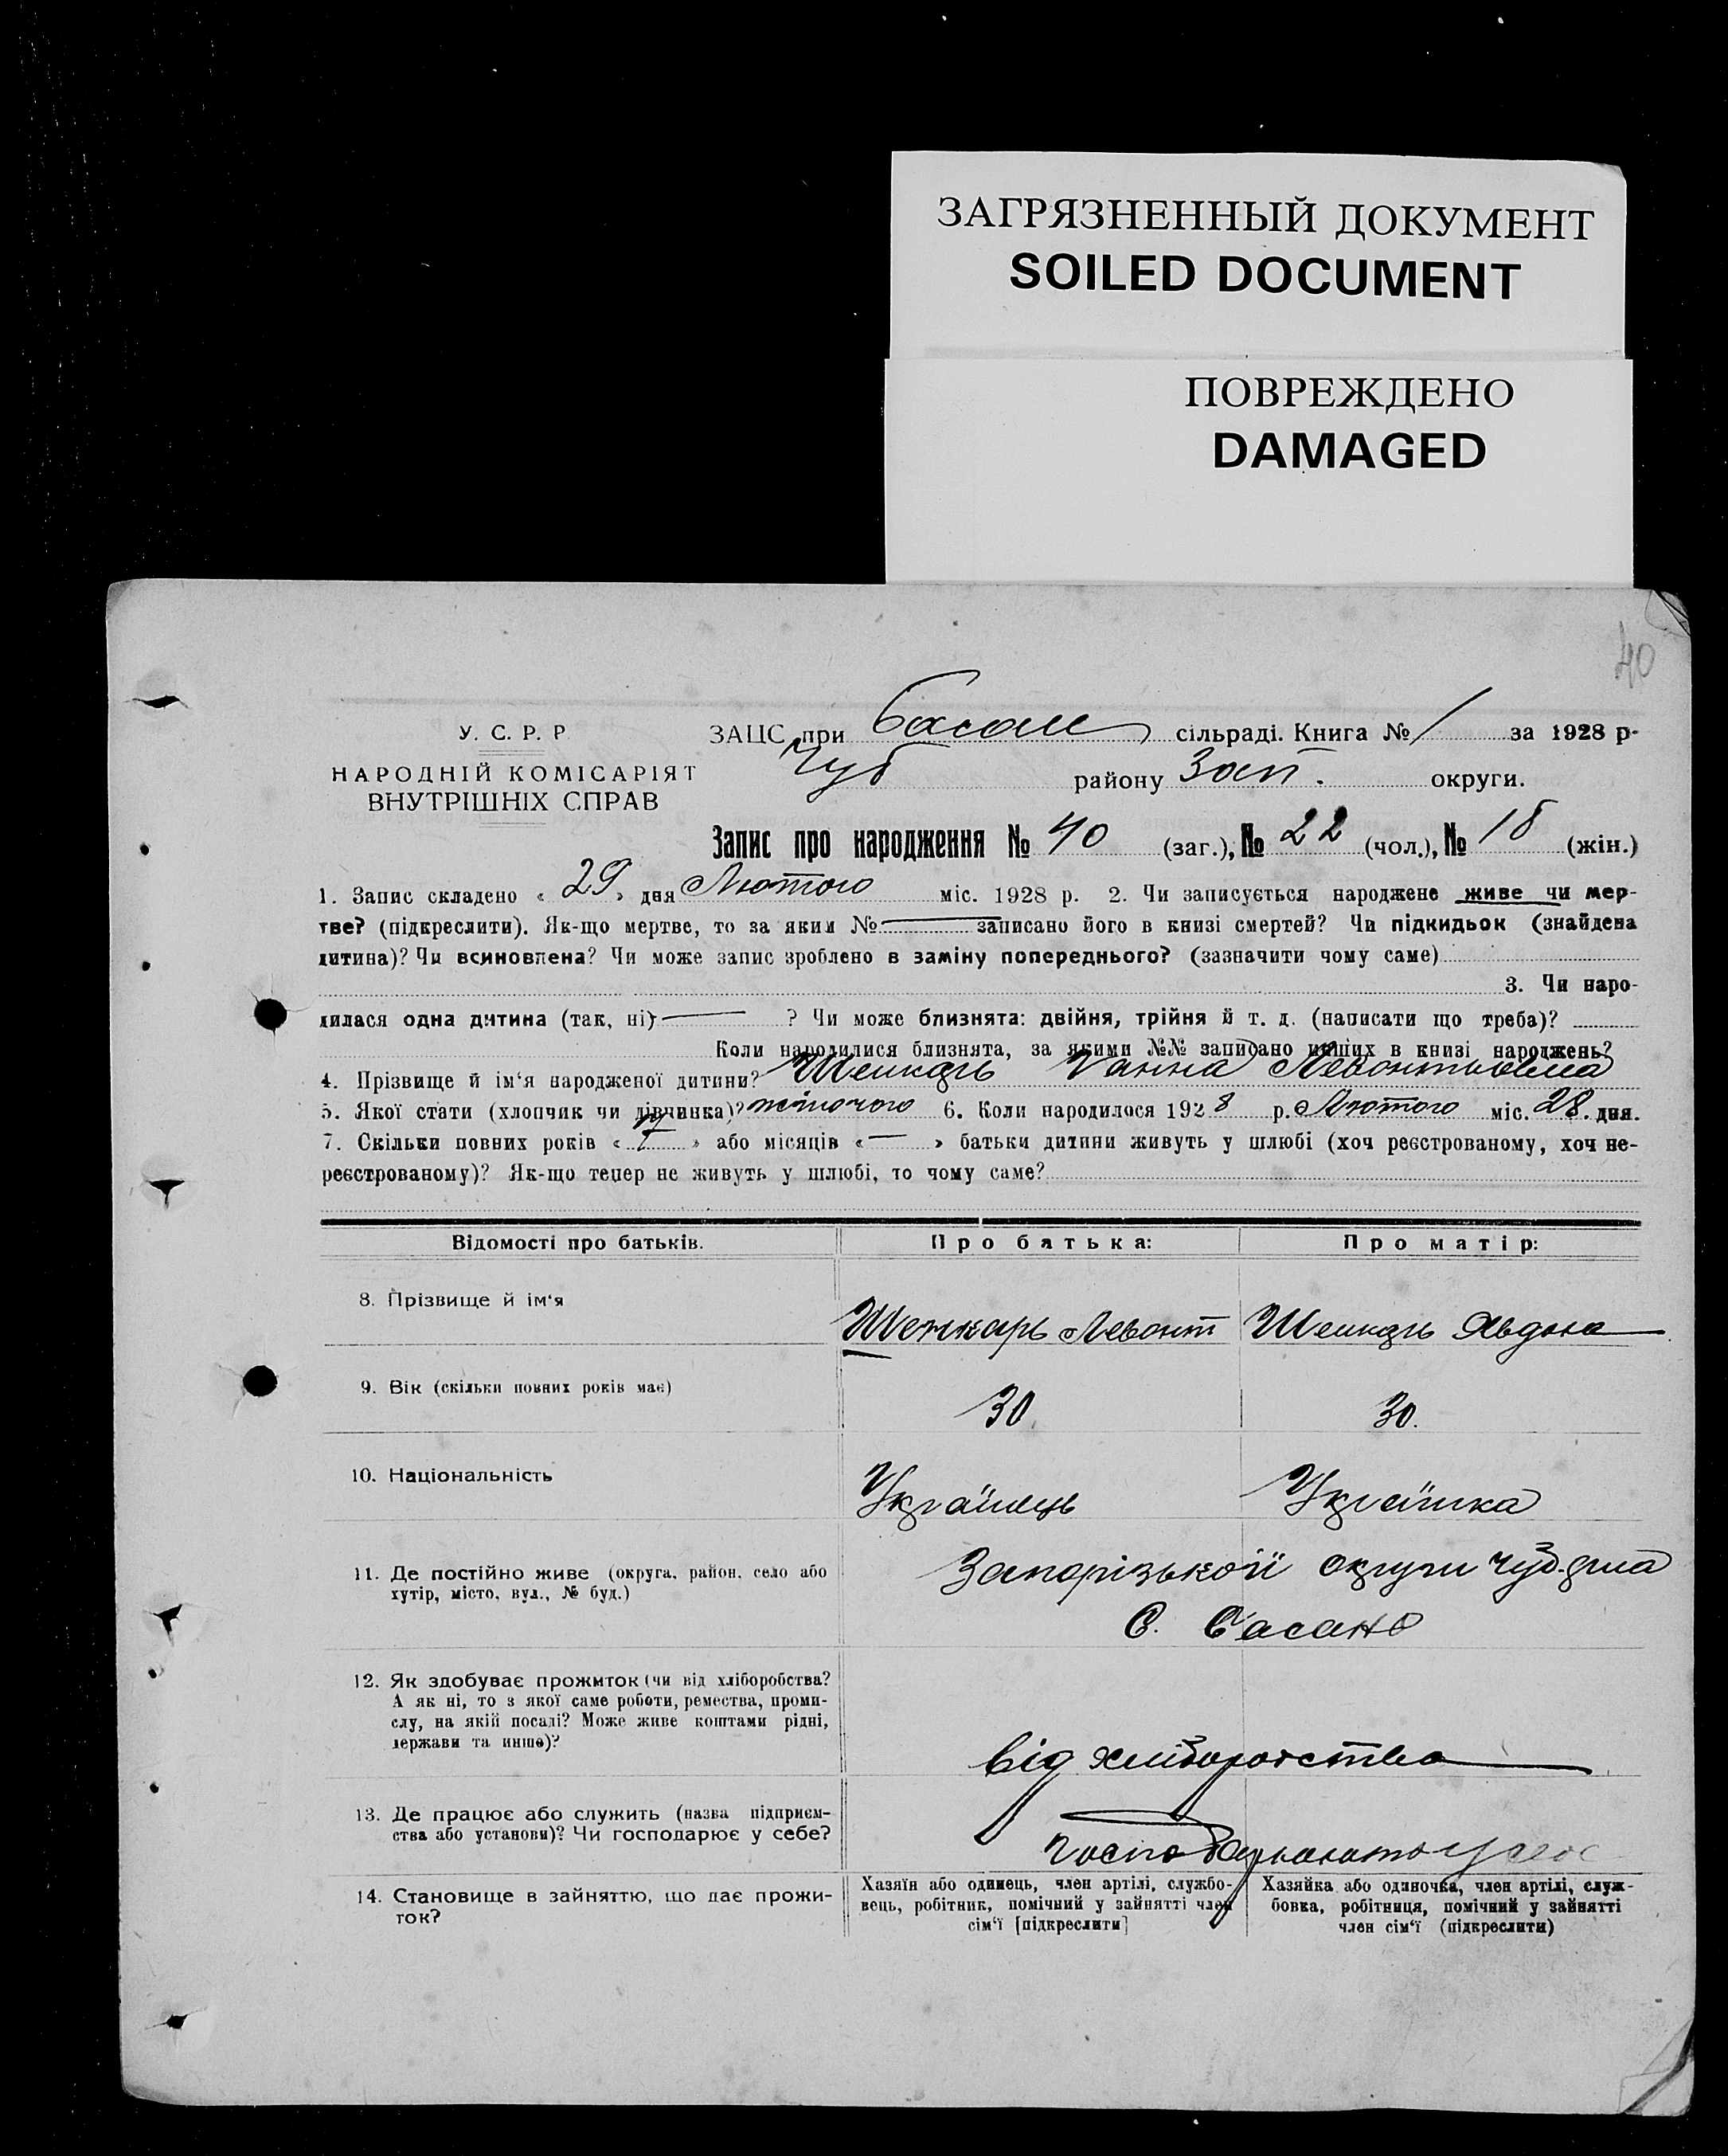 ЗАГРЯЗНЕННЫЙ ДОКУМЕНТ
SOILED DOCUMENT
ПОВРЕЖДЕНО
DAMAGED
40
У. С. Р. Р
НАРОДНІЙ КОМІСАРІЯТ
ВНУТРІШНІХ СПРАВ
ЗАЦС при Басан сільраді. Книга № 1 за 1928 р.
Чуб району Зап. округи.
Запис про народження № 40 (заг.), № 22 (чол.), № 18 (жін.)
1. Запис складено « 29 » дня Лютого міс. 1928 р. 2. Чи записується народжене живе чи мер-
тве? (підкреслити). Як-що мертве, то за яким № записано його в книзі смертей? Чи підкидьок (знайдена
дитина)? Чи всиновлена? Чи може запис зроблено в заміну попереднього? (зазначити чому саме)
3. Чи наро-
дилася одна дитина (так, ні) ? Чи може близнята: двійня, трійня й т. д. (написати що треба)?
Коли народилися близнята, за якими №№ записано инших в книзі народжень?
4. Прізвище й ім‘я народженої дитини? Шенкарь Ганна Левонтьевна
5. Якої стати (хлопчик чи дівчинка)? жіночого 6. Коли народилося 1928 р. Лютого міс. 28. дня.
7. Скільки повних років « » або місяців « — » батьки дитини живуть у шлюбі (хоч реєстрованому, хоч не-
реєстрованому)? Як-що тепер не живуть у шлюбі, то чому саме?
Відомості про батьків. Про батька: Про матір:
8. Прізвище й ім‘я
Шенкарь Левонт Шенкарь Явдоха
9. Вік (скільки повних років має)
30. 30.
10. Національність
Українець Українка
11. Де постійно живе (округа, район, село або
хутір, місто, вул., № буд.)
Запорізькой округи Чуб.
С. Басань
12. Як здобуває прожиток (чи від хліборобства?
А як ні, то з якої саме роботи, ремества, проми-
слу, на якій посаді? Може живе коштами рідні,
держави та инше)?
від хліборобства
13. Де працює або служить (назва підприєм-
ства або установи)? Чи господарює у себе?
14. Становище в зайняттю, що дає прожи-
ток?
Хазяїн або одинець, член артілі, службо-
вець, робітник, помічний у зайнятті член
сім‘ї [підкреслити]
Хазяйка або одиночка, член артілі, служ-
бовка, робітниця, помічний у зайнятті
член сім‘ї (підкреслити)